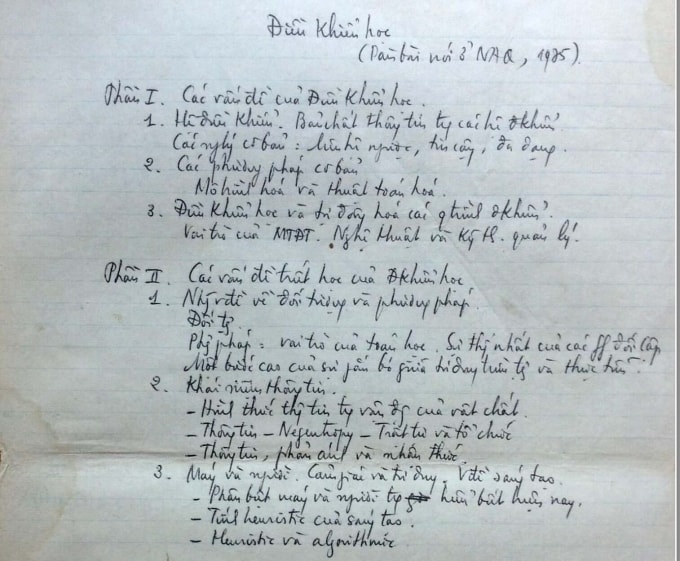 Điều Khiển học
(Dàn bài nói ở NAQ, 1975).
Phần I. Các vấn đề của Điều Khiển học.
1. Hệ điều Khiển. Bản chất thông tin tg các hệ đkhiển.
Các ng lý cơ bản: liên hệ ngược, tin cậy, đa dạng.
2. Các phương pháp cơ bản
Mô hình hoá và thuật toán hoá.
3. Điều Khiển học và tự động hoá các qtrình đkhiển.
Vai trò của MTĐT. Nghệ thuật và Kỹ th. quản lý.
Phần II. Các vấn đề triết học của ĐKhiển học
1. Nhg vđề về đối tượng và phương pháp.
Đối tg
Phg pháp: vai trò của toán học. Sự thg nhất của các ff đối lập
Một bước cao của sự gắn bó giữa tư duy trừu tg và thực tiễn.
2. Khái niệm thông tin.
- Hình thức thg tin tg vận đg của vật chất.
- Thông tin - Negentropy - Trật tự và tổ chức
- Thông tin, phản ánh và nhận thức.
3. Máy và người. Cảm giác và tư duy. Vđề sáng tạo.
- Phân biệt máy và người tg hiểu biết hiện nay.
- Tính heuristic của sáng tạo.
- Heuristic và algorithmic